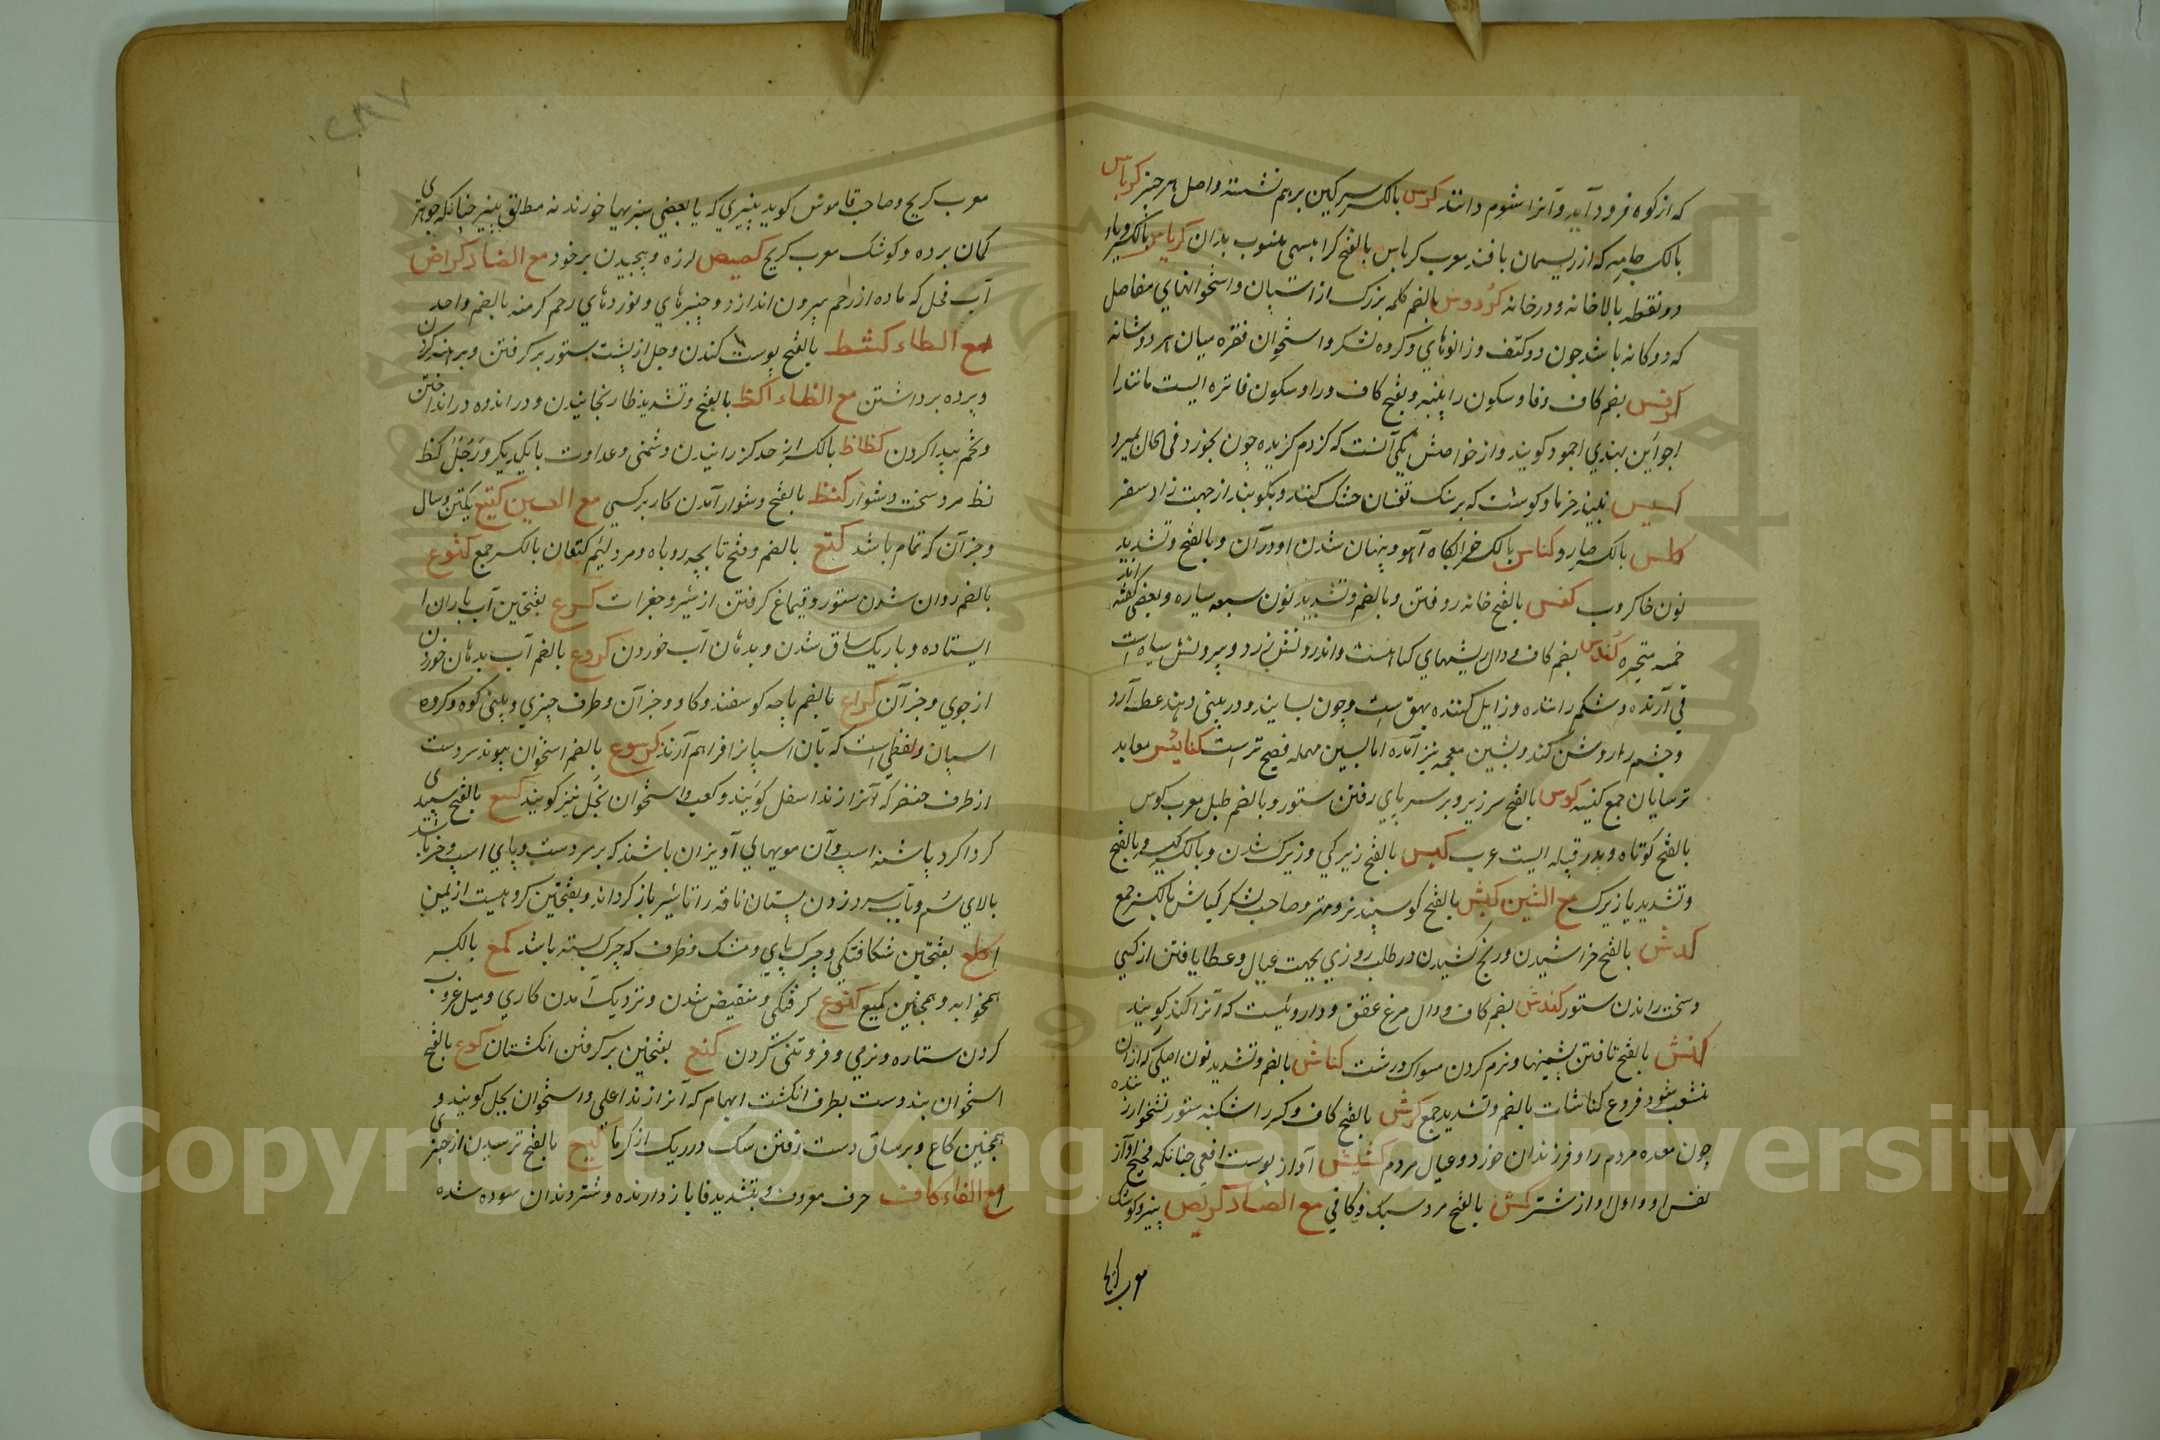 که از کوه فرود آید و آنرا شوم دانند کرس بالکسر سرکین برهم نشسته و اصل هر چیز کرباس
بالکسر جامه که از ریسمان بافند معرب کرباس بالفتح کرابیسی منسوب بدان کریاس بالکسر و یاء
دو نقطه بالاخانه و درخانه کردوس بالضم کله بزرک از اسپان و استخوانهای مفاصل
که دوکانه باشد چون دو کتف و زانوهای و کروه لشکر و استخوان فقره میان هر دو شانه
کرفس بضم کاف و فا و سکون را پنبه و بفتح کاف و را و سکون فا تره ایست مانند
اجواین بهندی اجمود کویند و از خواصش یکی آنست که کزدم کزیده چون بخورد فی الحال بمیرد
کسیس نبیذ خرما و کوشت که بر سنک تفسان خشک کنند و بکوبند از جهت زاد سفر
کلس بالکسر صارو کناس بالکسر خوابکاه آهو و پنهان شدن او در آن و بالفتح و تشدید
نون خاکروب کنس بالفتح خانه روفتن و بالضم و تشدید نون سبعه سیاره و بعضی کفته اند
خمسه متحیره کندس بضم کاف و دال ریشهای کیاهست و اندرونش زرد و بیرونش سیاه است
قی آرنده و شکم راننده و زایل کننده بهق است و چون بسایند و در بینی دهند عطسه آرد
و چشم را روشن کند و بشین معجمه نیز آمده اما بسین مهمله فصیح تر است کنائس معابد
ترسایان جمع کنیسه کوس بالفتح سرزیر و بر سه پای رفتن ستور و بالضم طبل معرب کوس
بالفتح کوتاه و پدر قبیله ایست عرب کیس بالفتح زیرکی و زیرک شدن و بالکسر کیسه و بالفتح
و تشدید یا زیرک مع الشین کبش بالفتح کوسپند نر و مهتر و صاحب لشکر کباش بالکسر جمع
کدش بالفتح خراشیدن و رنج کشیدن در طلب روزی بجهت عیال و عطا یافتن از کسی
و سخت راندن ستور کندش بضم کاف و دال مرغ عقعق و داروئیست که آنرا کندکویند
کنش بالفتح تافتن پشمینها و نرم کردن مسواک درشت کناش بالضم و تشدید نون اصلی که از آن
منشعب شود فروع کناشات بالضم و تشدید جمع کرش بالفتح کاف و کسر را شکنبه ستور نشخوار زننده
چون معده مردم را و فرزندان خورد و عیال مردم کشیش آواز پوست افعی چنانکه فحیح آواز
نفس او و اول آواز شتر کمش بالفتح مرد سبک و کافی مع الصاد کریص پنیر و کوشک
معرب
معرب کریج و صاحب قاموس کوید پنیری که با بعضی سبزیها خورند نه مطلق پنیر چنانکه جوهری
کمان برده و کوشک معرب کریج کصیص لرزه و پیچیدن بر خود مع الضاد کراض
آب فحل که ماده از رحم بیرون اندازد و چنبرهای و نوردهای رحم کرضه بالضم واحد
مع الطاء کشط بالفتح پوست کندن و جل از پشت ستور بر کرفتن و برهنه کردن
و پرده برداشتن مع الظاء کظ بالفتح و تشدید ظا رنجانیدن و در اندوه در انداختن
و تخم پیدا کردن کظاظ بالکسر از حد کزرانیدن و شمنی و عداوت با یکدیکر و رَجُلٌ کظ
نظ مرد سخت و شوار کنظ بالفتح و شوار آمدن کار بر کسی مع العین کتیع یکتن و سال
و جز آن که تمام باشد کتع بالضم و فتح تا بچه روباه و مرد لئیم کتعان بالکسر جمع کثوع
بالضم روان شدن ستور و قیماغ کرفتن از شیر و جغرات کرع بفتحتین آب باران
ایستاده و باریک ساق شدن و بدهان آب خوردن کروع بالضم آب بدهان خوردن
از جوی و جز آن کراع بالضم پاچه کوسفند و کاو و جز آن و طرف چیزی و بینی کوه و کروه
اسپان و لفظی است که بآن اسپانرا فراهم آرند کرسوع بالضم استخوان پیوند سر دست
از طرف خنصر که آنرا زند اسفل کویند و کعب و استخوان بجل نیز کویند کسع بالفتح سپیدی
کرداکرد پاشنه اسپ و آن مویهای آویزان باشد که بر سر دست و پای اسپ و خر باشد
بالای سم و بآب سرد زدن پستان ناقه را تا شیر باز کرداند و بفتحتین کروهیست از یمن
کلع بفتحتین شکافتکی و چرک پای و مشک و ظرف که چرک بسته باشد کمع بالکسر
همخوابه و همچنین کمیع کنوع کرفتکی و منقبض شدن و نزدیک آمدن کاری و میل غروب
کردن ستاره و نرمی و فروتنی کردن کنع بفتحتین بر کرفتن انکشتان کوع بالفتح
استخوان بند دست بطرف انکشت ابهام که آنرا زند اعلی و استخوان بجل کویند و
همچنین کاع و بر ساق دست رفتن سک در ریک از کرما کیع بالفتح ترسیدن از چیزی
مع الفاء کاف حرف معروف و بتشدید فا باز دارنده و شتر دندان سوده شده
Copyright © King Saud University